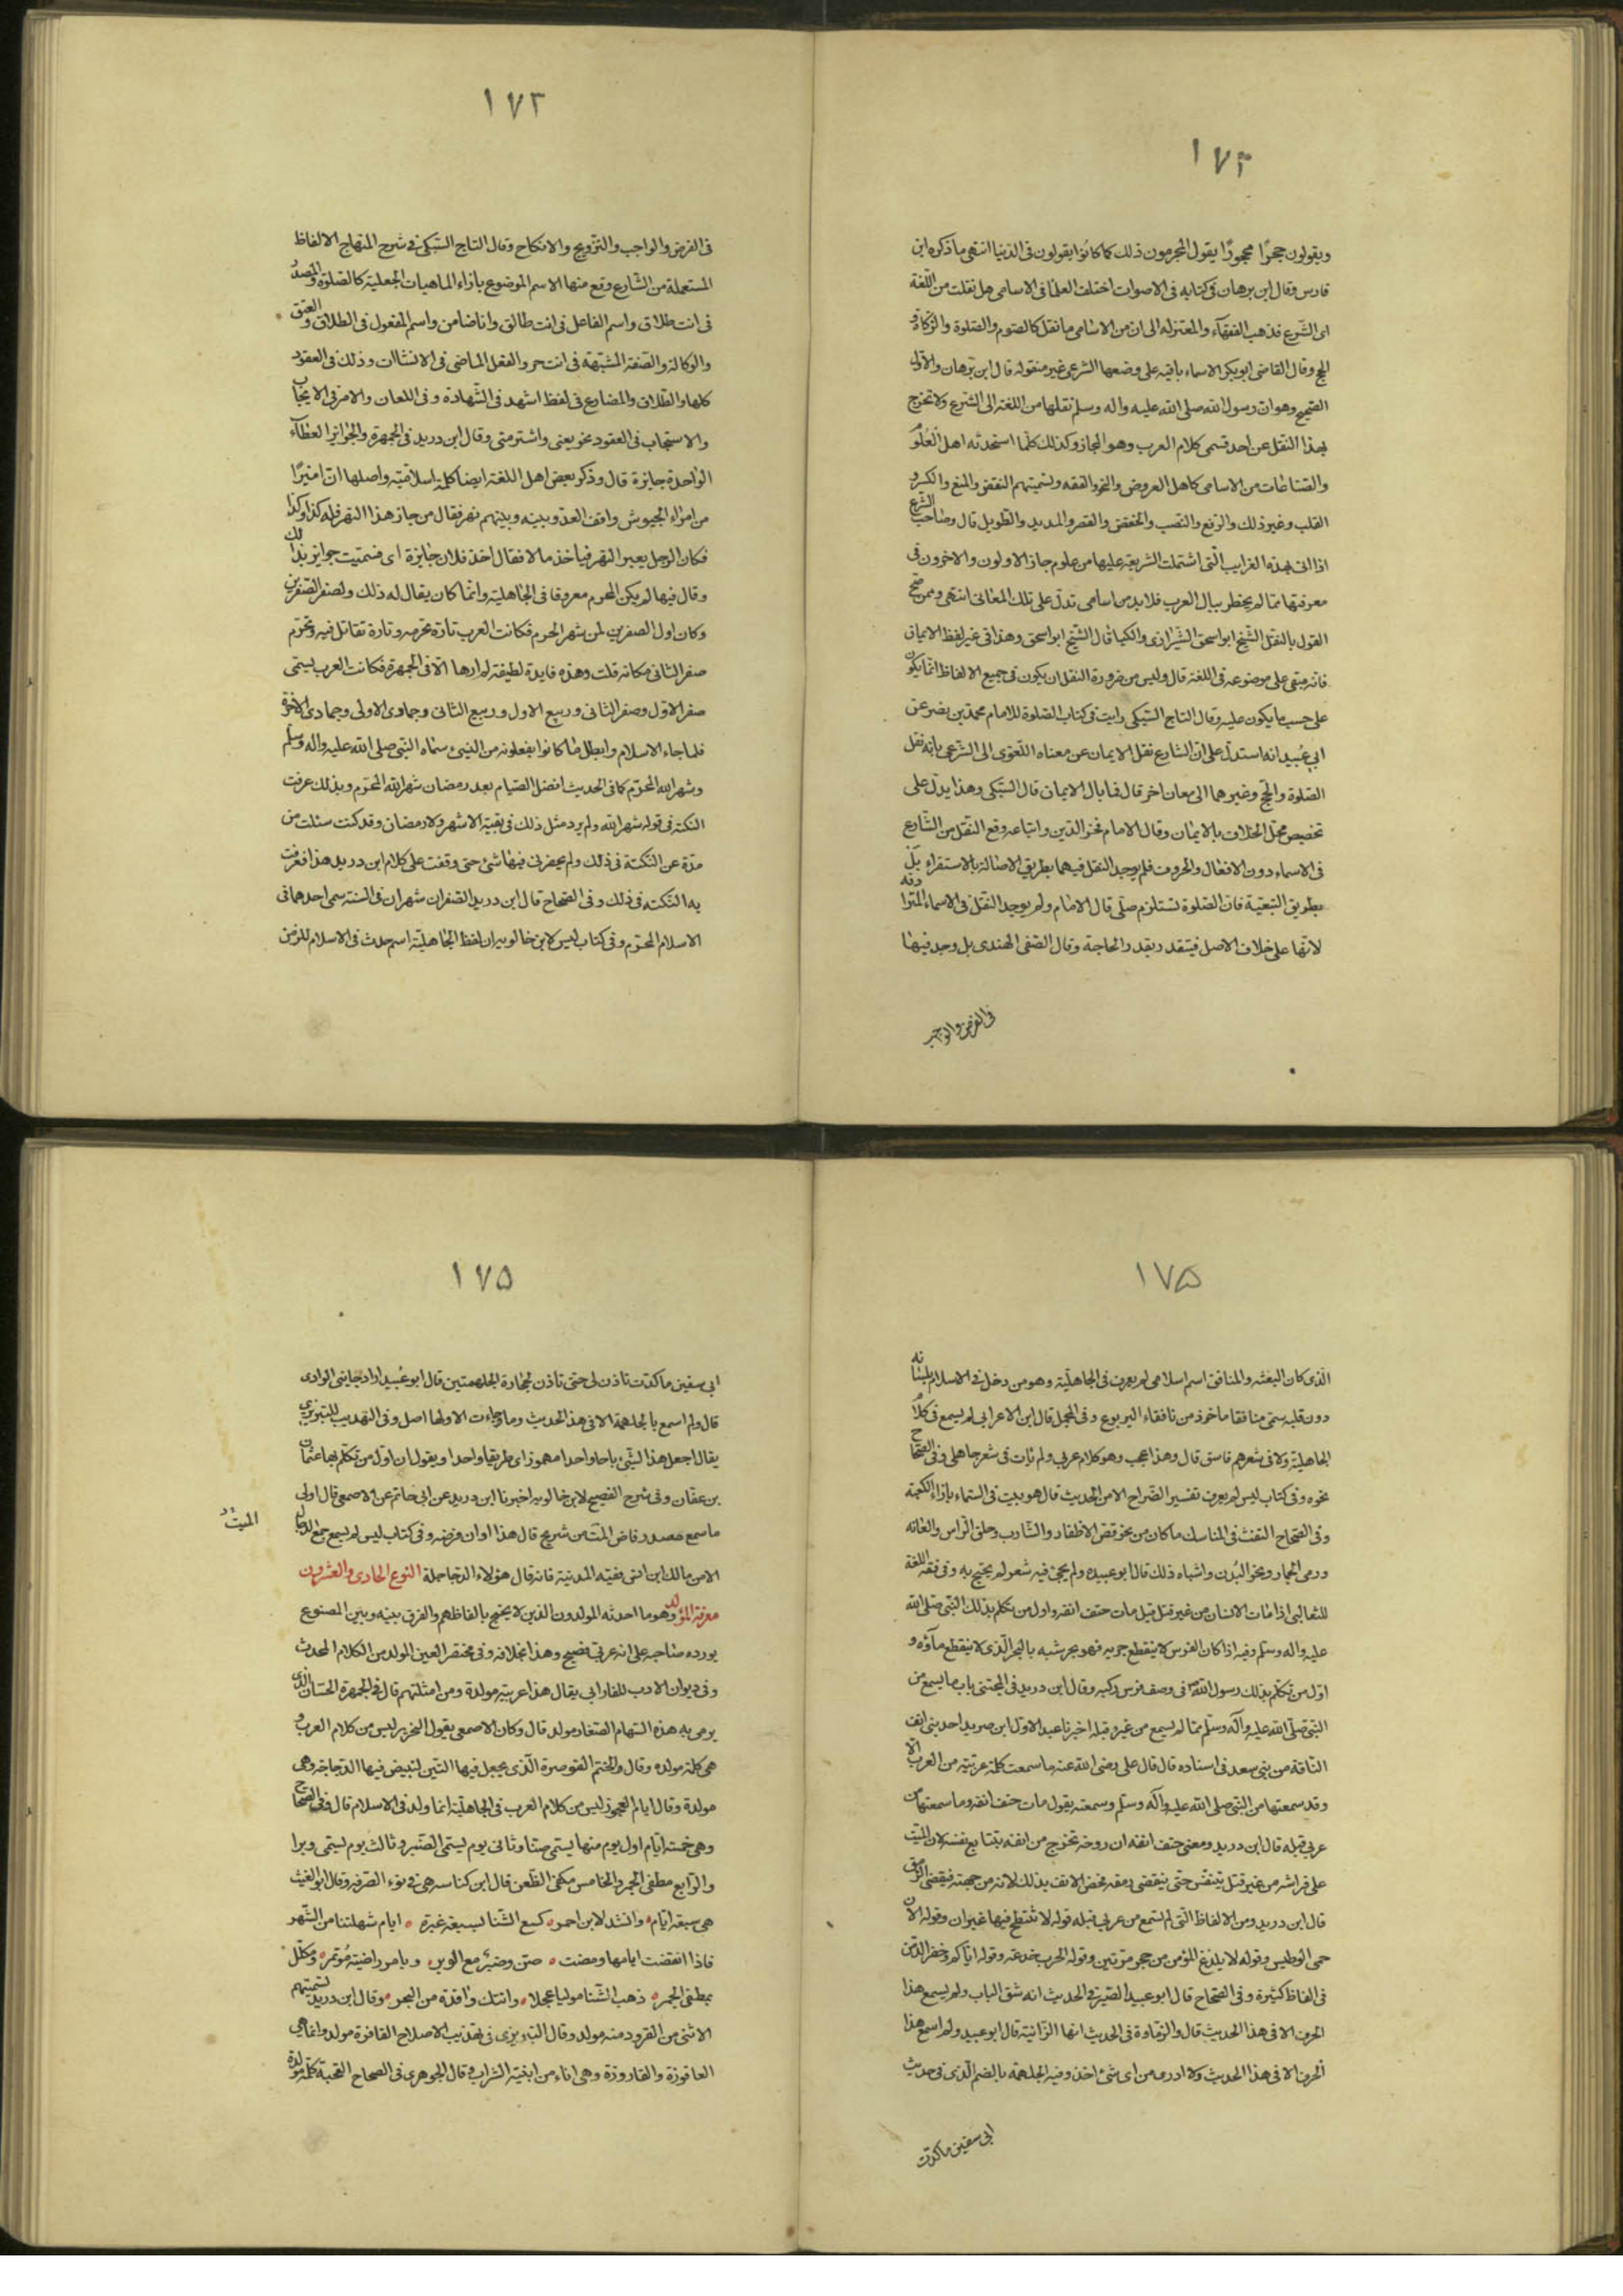 ١٧٣
ويقولون حجرًا محجورًا يقول المجرمون ذلك كما كانوا يقولون فى الدنيا انتهى ما ذكره ابن
فارس وقال ابن برهان فى كتابه فى الاصوات اختلف العلما فى الاسامى هل نقلت من اللّغة
الى الشّرع فذهب الفقهآء والمعتزله الى ان من الاسامى ما نقل كالصّوم والصّلوة والزّكاة و
الحج وقال القاضى ابو بكر الاسماء باقية على وضعها الشرعى غير منقوله قال ابن برهان والاول
الصّحيح وهو ان رسول الله صلى الله عليه واله وسلم نقلها من اللغة الى الشّرع ولا تخرج
بهذا النقل عن احد قسمى كلام العرب وهو المجاز وكذلك كلّما استحدثه اهل العلوم
والصّناعات من الاسامى كاهل العروض والنحو والفقه وتسميتهم النقض والمنع والكسر و
القلب وغير ذلك والرّفع والنّصب والخفض والقصر والمديد والطّويل قال وصاحب الشّرع
اذا اتى بهذه الغرايب الّتى اشتملت الشريعة عليها من علوم جاز الاولون والاخرون فى
معرفتها ممّا لم يخطر ببال العرب فلا بد من اسامى تدلّ على تلك المعانى انتهى وممن صحّح
القول بالنقل الشّيخ ابو اسحق الشّيرازى والكيا قال الشّيخ ابو اسحق وهذا فى غير لفظ الايمان
فانّه مبقى على موضوعه فى اللغة قال وليس من ضرورة النقل ان يكون فى جميع الالفاظ انّما يكون
على حسب ما يكون عليه وقال التاج السّبكى رايت فى كتاب الصّلوة للامام محمّد بن نصر عن
ابى عُبيد انه استدلّ على انّ الشارع نقل الايمان عن معناه اللّغوى الى الشّرعى بانه نقل
الصّلوة والحجّ وغيرهما الى معان اخر قال فما بال الايمان قال السّبكى وهذا يدلّ على
تخصيص محلّ الخلاف بالايمان وقال الامام فخر الدّين واتباعه وقع النّقل من الشّارع
فى الاسماء دون الافعال والحروف فلم يوجد النقل فيهما بطريق الاصالة بالاستقراء بل
بطريق التبعيّة فان الصّلوة تستلزم صلّى قال الامام ولم يوجد النّقل فى الاسماء المترادفه
لانّها على خلاف الاصل فيتقدر بقدر الحاجة وقال الصّفى الهندى بل وجد فيها
فى الفرض والواجب
١٧٣
فى الفرض والواجب والتّزويج والانكاح وقال التاج السّبكى فى شرح المنهاج الالفاظ
المستعملة من الشّارع وقع منها الاسم الموضوع بازاء الماهيات الجعلية كالصّلوة والمصدر
فى انت طلاق واسم الفاعل فى انت طالق وانا ضامن واسم المفعول فى الطلاق والعتق
والوكالة والصّفة المشبّهة فى انت حر والفعل الماضى فى الانشاات وذلك فى العقود
كلها والطّلاق والمضارع فى لفظ اشهد فى الشّهادة وفى اللعان والامر فى الايجاب
والاستجاب فى العقود نحو بعنى واشتر منى وقال ابن دريد فى الجمهرة والجوائز العطآء
الواحدة جايزة قال وذكر بعض اهل اللغة ايضا كلمة اسلاميّة واصلها انّ اميرًا
من امراء الجيوش واقف العدوّ وبينه وبينهم نهر فقال من جاز هذا النهر فله كذا وكذا
فكان الرّجل يعبر النّهر فياخذ مالا فقال اخذ فلان جايزة اى فسميّت جوايز بذلك
وقال فيها لم يكن المحرم معروفا فى الجاهلية وانّما كان يقال له ذلك ولصفر الصّفرين
وكان اول الصفرين لمن شهر الحرم فكانت العرب تارة تحرمه وتارة تقاتل فيه وتحرّم
صفر الثانى مكانه قلت وهذه فايدة لطيفة لم ارها الّا فى الجمهرة فكانت العرب يسمّى
صفر الاوّل وصفر الثانى وربيع الاول وربيع الثانى وجمادى الاولى وجمادى الاخرة
فلما جاء الاسلام وابطل ما كانوا يفعلونه من النّسئ سماه النّبى صلى الله عليه واله وسلّم
وشهر الله المحرّم كما فى الحديث افضل الصّيام بعد رمضان شهر الله المحرّم وبذلك عرفت
النكتة فى قوله شهر الله ولم يرد مثل ذلك فى بقيّة الاشهر ولا رمضان وقد كنت سئلت من
مدّة عن النكتة فى ذلك ولم يحضرنى فيها شئ حتى وقفت على كلام ابن دريد هذا فعرفت
به النّكته فى ذلك وفى الصّحاح قال ابن دريد الصّفران شهران فى السّنة سمى احدهما فى
الاسلام المحرّم وفى كتاب ليس لابن خالويه ان لفظ الجاهليّة اسم حدث فى الاسلام للزمن
١٧٥
الّذى كان البعثه والمنافق اسم اسلامى لم يعرف فى الجاهليّة وهو من دخل فى الاسلام بلسانه
دون قلبه سمّى منافقا ماخوذ من نافقاء اليربوع وفى المجمل قال ابن الاعرابى لم يسمع فى كلام
الجاهليّة ولا فى شعرهم فاسق قال وهذا عجب وهو كلام عربى ولم يات فى شعر جاهلى وفى الصّحاح
نحوه وفى كتاب ليس لم يعرف تفسير الضّراح الا من الحديث قال هو بيت فى السّماء بازاء الكعبة
وفى الصّحاح التفث فى المناسك ما كان من نحو قصّ الاظفار والشّارب وحلق الرّاس والعانه
ورمى الجمار ونحر البُدن واشباه ذلك قال ابو عبيده ولم يجئ فيه شعر لم يحتج به وفى فقه اللغة
للثعالبى اذا مات الانسان من غير قتل قيل مات حتف انفه واول من تكلم بذلك النّبى صلى الله
عليه واله وسلّم وفيه اذا كان الفرس لا ينقطع جريه فهو بحر شبه بالبحر الّذى لا ينقطع مآؤه و
اوّل من تكلّم بذلك رسول الله فى وصف فرس ركبه وقال ابن دريد فى المجتنى باب ما يسمع من
النّبى صلّى الله عليه وآله وسلّم ممّا لم يسمع من غيره قبله اخبرنا عبد الاوّل ابن مريد احد بنى انف
النّاقة من بنى سعد فى اسناده قال قال على رضى الله عنه ما سمعت كلمة عربيّة من العرب الّا
وقد سمعتها من النّبى صلى الله عليه وآله وسلّم وسمعته يقول مات حتف انفه وما سمعتها من
عربى قبله قال ابن دريد ومعنى حتف انفه ان روحه تخرج من انفه بتتابع نفسه لان الميّت
على فراشه من غير قتل يتنفّس حتى ينقضى رمقه فخصّ الانف بذلك لانه من جهته فيقضى الرّمق
قال ابن دريد ومن الالفاظ الّتى لم تسمع من عربى قبله قوله لا تنتطح فيها غيران وقوله الان
حمى الوطيس وقوله لا يلدغ المؤمن من حجر مرّتين وقوله الحرب خدعة وقوله ايّاكم وخضر الدّمن
فى الفاظ كثيرة وفى الصّحاح قال ابو عبيد الصّير فى الحديث انه شق الباب ولم يسمع هذا
الحرف الا فى هذا الحديث قال والزّمارة فى الحديث انها الزّانية قال ابو عبيد ولم اسمع هذا
الحرف الا فى هذا الحديث ولا ادرى من اى شئ اخذ وفيه الجلهمة بالضم الّذى فى حديث
ابى سفين ما كدت
١٧٥
ابى سفين ما كدت تاذن لى حتى تاذن لحجارة الجلهمتين قال ابو عُبيد اراد جانبى الوادى
قال ولم اسمع بالجلهمة الا فى هذ الحديث وما جاءت الا ولها اصل وفى التهذيب للتبريزى
يقال اجعل هذا الشّئ باجا واحدا مهموز اى طريقا واحدا ويقول ان اوّل من تكلّم بها عثمان
بن عفّان وفى شرح الفصيح لابن خالويه اخبرنا ابن دريد عن ابى حاتم عن الاصمعى قال اولى
ما سمع مصدر فاض الميّت من شريح قال هذا اوان فوضه وفى كتاب ليس لم يسمع جمع الدجال
الميّت
الا من مالك ابن انس فقيه المدنية فانه قال هؤلاء الدّجاجلة النوع الحادى والعشرون
معرفة المؤلد وهو ما احدثه المولدون الذين لا يحتج بالفاظهم والفرق بينه وبين المصنوع
يورده صاحبه على انه عربى فصيح وهذا بخلافه وفى مختصر العين المولد من الكلام المحدث
وفى ديوان الادب للفارابى يقال هذا عربية مولدة ومن امثلتهم قال فى الجمهرة الحسبان الذى
يومى به هذه السّهام الصّغار مولد قال وكان الاصمعى يقول النحرير ليس من كلام العرب و
هى كلمة مولده وقال والخم القوصرة الّذى يجعل فيها التّبن لتبيض فيها الدّجاجة وهى
مولدة وقال ايام العجوز ليس من كلام العرب فى الجاهليّة انما ولد فى الاسلام قال وفى الصّحاح
وهى خمسة ايّام اول يوم منها يسمّى صنّا وثانى يوم يسمّى الصّنبر وثالث يوم يسمّى وبرا
والرّابع مطفى الجمر والخامس مكفئ الظّعن قال ابن كناسه هى فى نوء الصّرفة وقال ابو الغيث
هى سبعة ايّام وانشد لابن احمر كسع الشّتا بسبعة غبرة ايام شهلتنا من الشّهر
فاذا انقضت ايامها ومضت صنّ وصنبر مع الوبر وبامر واخيه مُؤتمر ومعلّل
بمطفى الجمر ذهب الشّتا موليا عجلا واتتك واقدة من البحر وقال ابن دريد تسميتهم
الانثى من القرود منه مولد وقال التّبريزى فى تهذيب الاصلاح القاقزة مولد وانما هى
القاقوزة والقارورة وهى اناء من ابنية الشراب وقال الجوهرى فى الصحاح القحبة كلمة مولدة